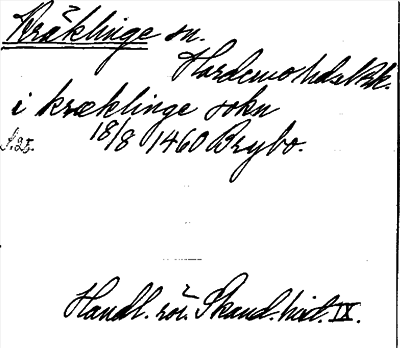 Kräklinge sn.
Hardemo hds Ök.
i kræklinge sokn
18/8 1460 Brybo.
S. 25.
Handl. rör. Skand. hist. IX.